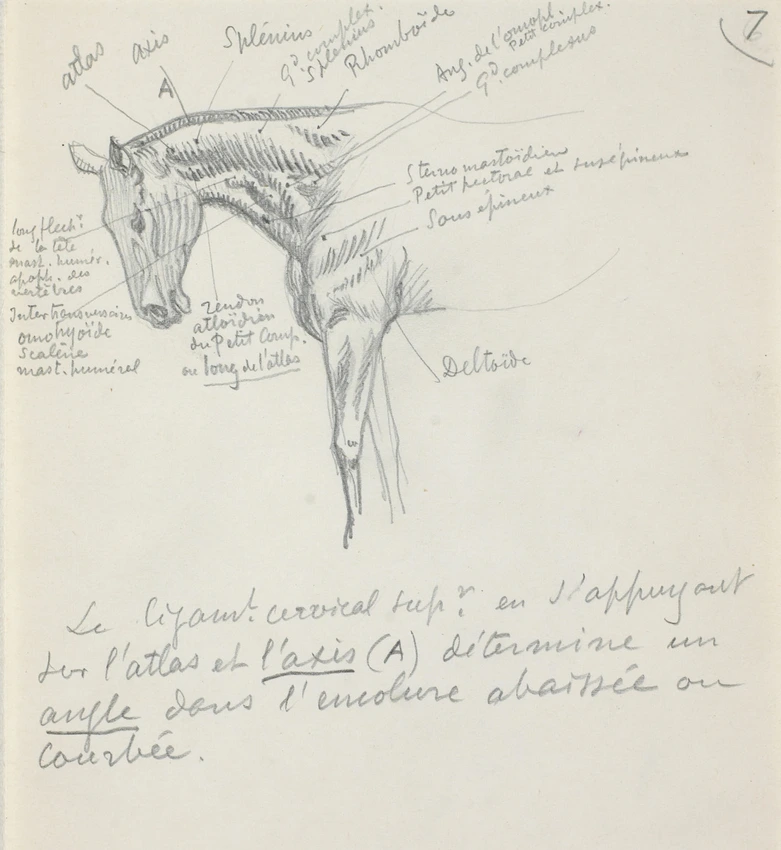 7
atlas
axis
A
Splénius
Gd complex.
Splénius
Rhomboïde
Ang. de l'omopl.
Petit complex.
Gd. complexus
Sterno mastoïdien
Petit pectoral et susépineux
Sous épineux
long flechr.
de la tête
mast. humér.
apoph. des
vertèbres
Intertransversaire
omohyoïde
Scalène
mast. huméral
Tendon
atloïdien
du Petit Comp.
ou long de l'atlas
Deltoïde
Le ligamt. cervical supr. en s'appuyant
sur l'atlas et l'axis (A) détermine un
angle dans l'encolure abaissée ou
courbée.